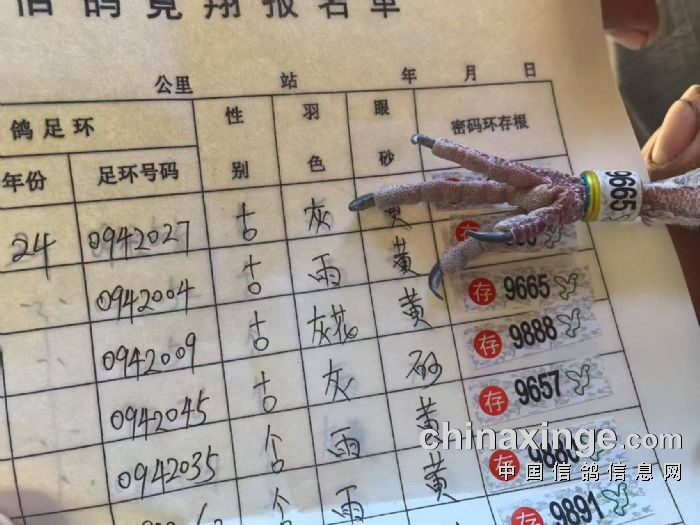 信鸽竞翔报名单
公里 站 年 月 日
鸽足环 性别 羽色 眼砂 密码环存根
年份 足环号码
24 0942027 灰 黄
9665
0942004 雨 黄 存 9665
0942009 灰花 黄 存 9888
0942045 灰 砂 存 9657
0942035 雨 黄 存
雨 黄 存 9891
chinaxinge.com
中国信鸽信息网